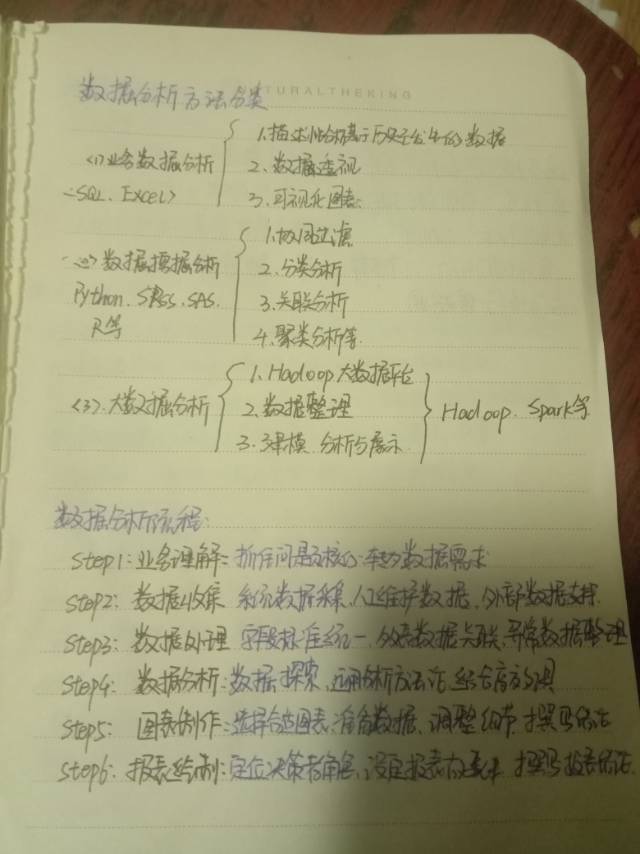 NATURALTHEKING
数据分析方法分类
<1>业务数据分析
SQL、Excel>
1.描述性分析基于历史已发生的数据
2.数据透视
3.可视化图表
<2>数据挖掘分析
Python、SPSS、SAS、
R等
1.协同过滤
2.分类分析
3.关联分析
4.聚类分析等
<3>.大数据分析
1.Hadoop大数据平台
2.数据整理
3.建模、分析与展示
Hadoop、Spark等
数据分析流程:
Step1:业务理解:抓住问题核心、转为数据需求
Step2:数据收集 系统数据采集、人工维护数据、外部数据支撑
Step3:数据处理 字段标准统一、多表数据关联、异常数据整理
Step4:数据分析:数据探索、运用分析方法论、结合
Step5:图表制作:选择合适图表、准备数据、调整细节、撰写结论
Step6:报表绘制:定位决策者角色、设定报表内 撰写报表结论